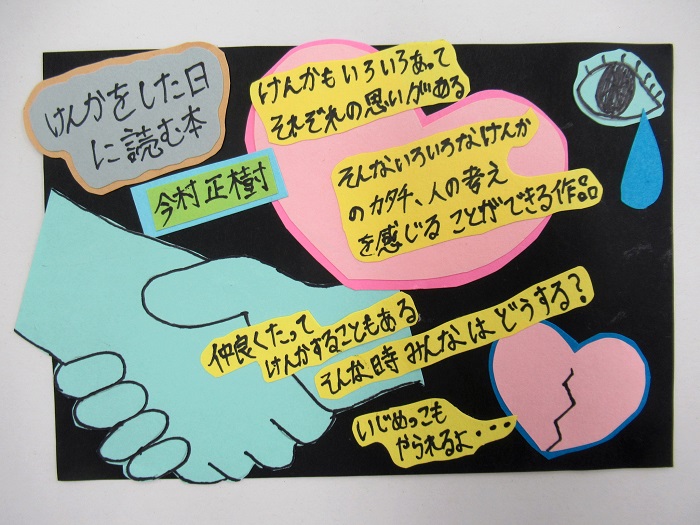 けんかをした日
に読む本
今村 正樹
けんかもいろいろあって
それぞれの思いがある
そんないろいろなけんか
のカタチ、人の考え
を感じることができる作品
仲良くたって
けんかすることもある
そんな時みんなはどうする?
いじめっこも
やられるよ・・・